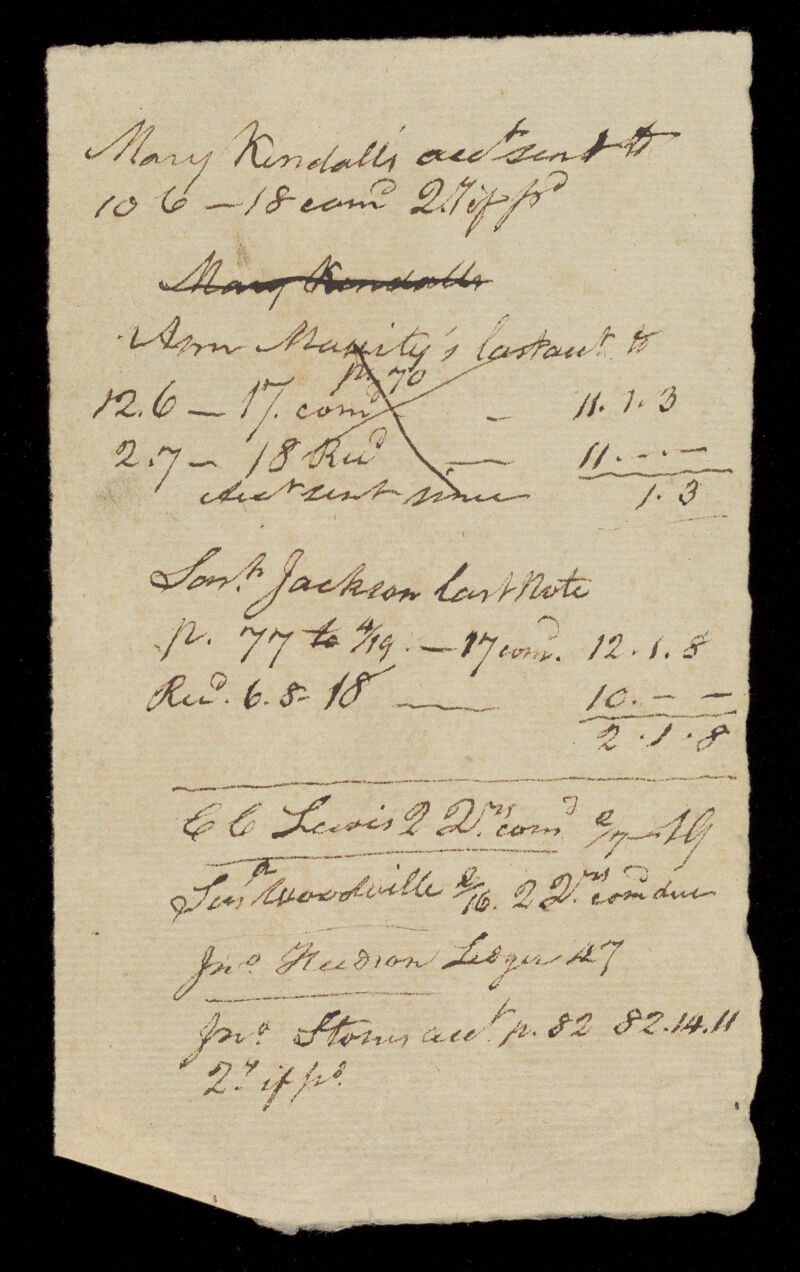 Mary Kendall's acct sent to
10 6 – 18 comd 2.y if pd
Mary Kendalls
Ann s last acct to
p. 70
12.6 – 17. comd – 11.1.3
2.7 – 18 Recd — 11.-.-
Acct sent since 1.3
Jackson last Note
p. 77 to 4/19. – 17 comd. 12.1.8
Recd. 6.8- 18 — 10.-.-
2.1.8
E C Lewis 2 Qrs comd 2/7 19
Woodville 2/16. 2 Qrs comd due
Jno Ledger 127
Jno Stones acct p. 82 82.14.11
2.y if pd.